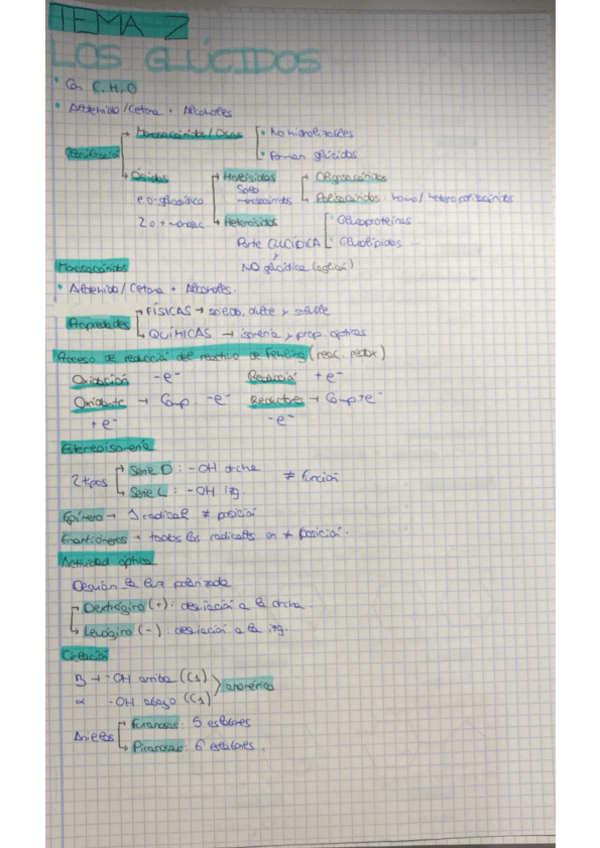 TEMA 2
LOS GLÚCIDOS
• Con C, H, O
• Aldehido/Cetona + Alcoholes
Clasificación
Monosacáridos/Osas
• No hidrolizables
• Forman glúcidos
Ósidos
e. o-glucosídico
2 o + monosac.
Holósidos
Solo monosacáridos
Oligosacáridos
Polisacáridos: homo/heteropolisacáridos
Heterósidos
Parte GLUCÍDICA
y
NO glucídica (aglucón)
Glucoproteínas
Glucolípidos ...
Monosacáridos
• Aldehido/Cetona + Alcoholes.
Propiedades
FÍSICAS → sólido, dulce y soluble
QUÍMICAS → isomería y prop. ópticas
Proceso de reducción del reactivo de Fehling (reac. redox)
Oxidación -e⁻
Reducción +e⁻
Oxidante → Comp. -e⁻
+e⁻
Reductores → Comp +e⁻
-e⁻
Estereoisomería
2 tipos
Serie D: -OH drcha
Serie L: -OH izq
≠ función
Epímero → 1 radical ≠ posición
Enantiómeros → todos los radicales en ≠ posición.
Actividad óptica
Desvían la luz polarizada
Dextrógiro (+): desviación a la drcha.
Levógiro (-): desviación a la izq.
Ciclación
β → -OH arriba (C1)
α -OH abajo (C1)
anomérico
Anillos
Furanosas: 5 eslabones
Piranosas: 6 eslabones.